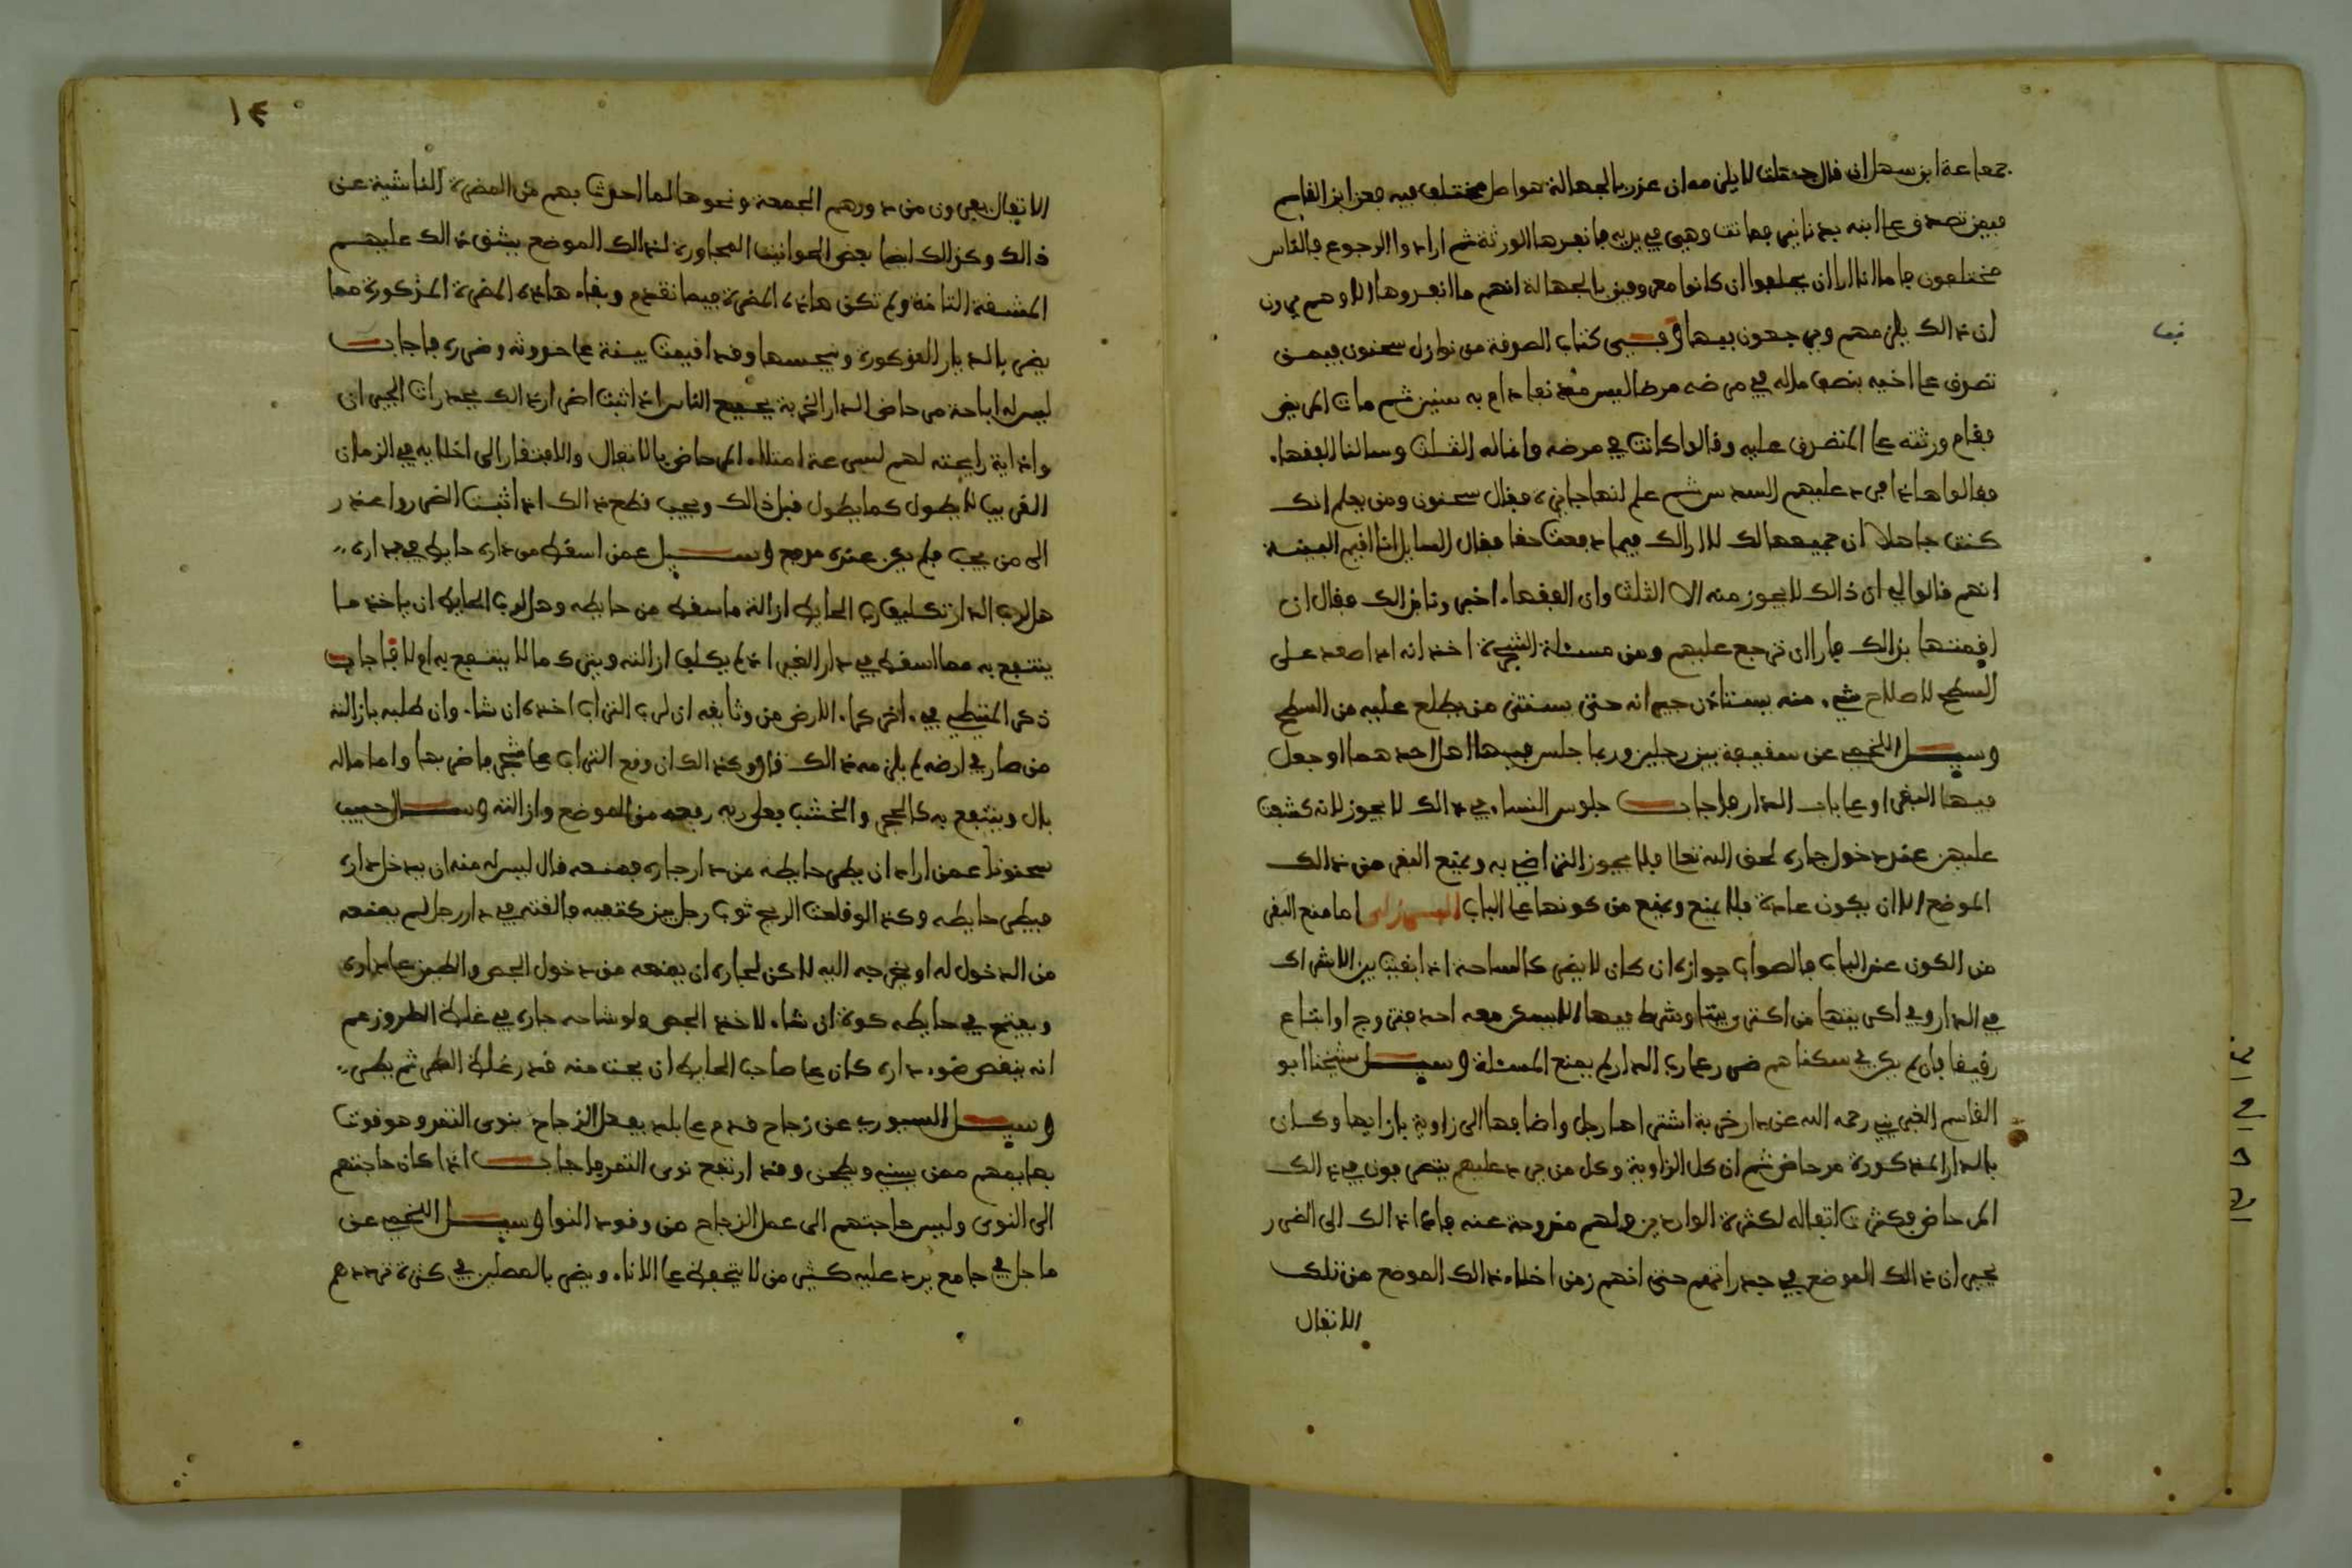 جماعة ابن سهل ان قال جهلت لا يلزمه ان عذر بالجهالة هو اصل مختلف فيه فعن ابن القاسم
فيمن تصدق على ابنه بدنانير فماتت وهي في يديه فانفذها الورثة ثم ارادوا الرجوع فالناس
مختلفون فاما انا ارا ان يحلفوا ان كانوا معروفين بالجهالة انهم ما انفذوها الا وهم يرون
ان ذالك يلزمهم ويرجعون فيها وفي كتاب الصدقة من نوازل سحنون فيمن
تصدق على اخيه بنصف ماله في مرضه مرضا ليس منه سنين ثم مات المريض
فقام ورثته على المتصدق عليه وقالوا كانت في مرضه وانما له الثلث وسالنا الفقهاء
فقالوا هاذا فرد عليهم السدس ثم علم انها جايزة فقال سحنون ومن يعلم انك
كنت جاهلا ان جميعها لك الا ارالك فيما دفعت حقا فقال السايل انا اقيم البينة
انهم قالوا لي ان ذالك لا يجوز منه الا الثلث وان الفقهاء اخبرونا بذالك فقال ان
اقمتها بذالك فارا ان ترجع عليهم ومن مسئلة الشجرة اخذ انه اذا صعد على
السطح لاصلاح شيء منه يستاذن جيرانه حتى يستتر من يطلع عليه من السطح
وسيل اللخمي عن سقيفة بين رجلين وربما جلس فيها اهل احدهما او جعل
فيها البقر او على باب الدار فاجاب جلوس النساء في ذالك لا يجوز لانه كشفت
عليهن عند دخول جاره لحق الله تعالى فلا يجوز التراضي به ويمنع البقر من ذالك
الموضع الا ان يكون عادة فلا يمنع ويمنع من كونها على الباب البرزلي اما منع البقر
من الكون عند الباب فالصواب جوازه ان كان لا يضر كالساحة اذا بقيت بين الاشراك
في الدار وفي اكريتها من اكترى بيتا وشرط فيها الا يسكن معه احد فتزوج او ابتاع
رقيقا فان لم يكن في سكناهم ضرر على رب الدار لم يمنع المسئلة وسيل شيخنا ابو
القاسم الغبريني رحمه الله عن دار خربة اشتراها رجل واضافها الى زاوية بازايها وكان
بالدار المذكورة مرحاض ثم ان كل الزاوية وكل من يرد عليهم يتصرفون في ذالك
المرحاض فكثرت اثقاله لكثرة الواردين ولهم مندوحة عنه فادا ذالك الى الضرر
بجيران ذالك الموضع في جدراتهم حتى انهم زمن اخلاء ذالك الموضع من تلك
الاثقال
١٤
الاثقال يفرون من دورهم الجمعة ونحوها لما احدث بهم من المضرة الناشية عن
ذالك وكذالك ايضا بعض الحوانيت المجاورة لذالك الموضع يشق ذالك عليهم
المشقة التامة ولم تكن هاذه المضرة فيما تقدم وبقاء هاذه المضرة المذكورة مما
يضر بالديار المذكورة ويبخسها وقد اقيمت بينة على حدوثه وضرره فاجاب
ليس له اباحة مرحاض الدار الخربة لجميع الناس اذا ثبت اضرار ذالك بجدرات الجيران
واذاية رايحته لهم لسرعة امتلاء المرحاض بالاثقال والافتقار الى اخلايه في الزمان
القريب لا يطول كما يطول قبل ذالك ويجب قطع ذالك اذا ثبت الضرر واعذر
الى من يجب فلم يكن عنده مدفع وسيل عمن اسقط من داره حايط في جداره
هل لرب الدار تكليف رب الحايط ازالة ما سقط من حايطه وهل لرب الحايط ان ياخذ ما
ينتفع به مما سقط في دار الغير اذا لم يكلف ازالته ويترك ما لا ينتفع به ام لا فاجاب
ذكر المتيطي في اخر كراء الارض من وثايقه ان لرب التراب اخذه ان شاء وان طلبه بازالته
من صار في ارضه لم يلزمه ذالك قال وكذالك ان وقع التراب على شجر فاضر بها واما ماله
بال وينتفع به كالحجر والخشب فعلى ربه رفعه من الموضع وازالته وسال حبيب
سحنونا عمن اراد ان يطر حايطه من دار جاره فمنعه قال ليس له منه ان يدخل داره
فيطر حايطه وكذا لو قلعت الريح ثوب رجل من كتفيه والقته في دار رجل لم يمنعه
من الدخول له او يخرجه اليه لاكن لجاره ان يمنعه من دخول الجص والطين على داره
ويفتح في حايطه كوة ان شاء لاخذ الجص ولو شاحه جاره في غلظ الطر وزعم
انه ينقص ضوء داره كان على صاحب الحايط ان يحت منه قدر غلظ الطر ثم يطر
وسيل السيوري عن زجاج قدم على بلد يعمل الزجاج بنوى التمر وهو قوت
بهايمهم ممن يبيع ويطحن وقد ارتفع نوى التمر فاجاب اذا كان حاجتهم
الى النوى وليس حاجتهم الى عمل الزجاج من وقود النوا وسيل اللخمي عن
ماجل في جامع يرد عليه كثير من لا يتحفظ على الاناء ويضر بالمصلين في كثرة ترددهم